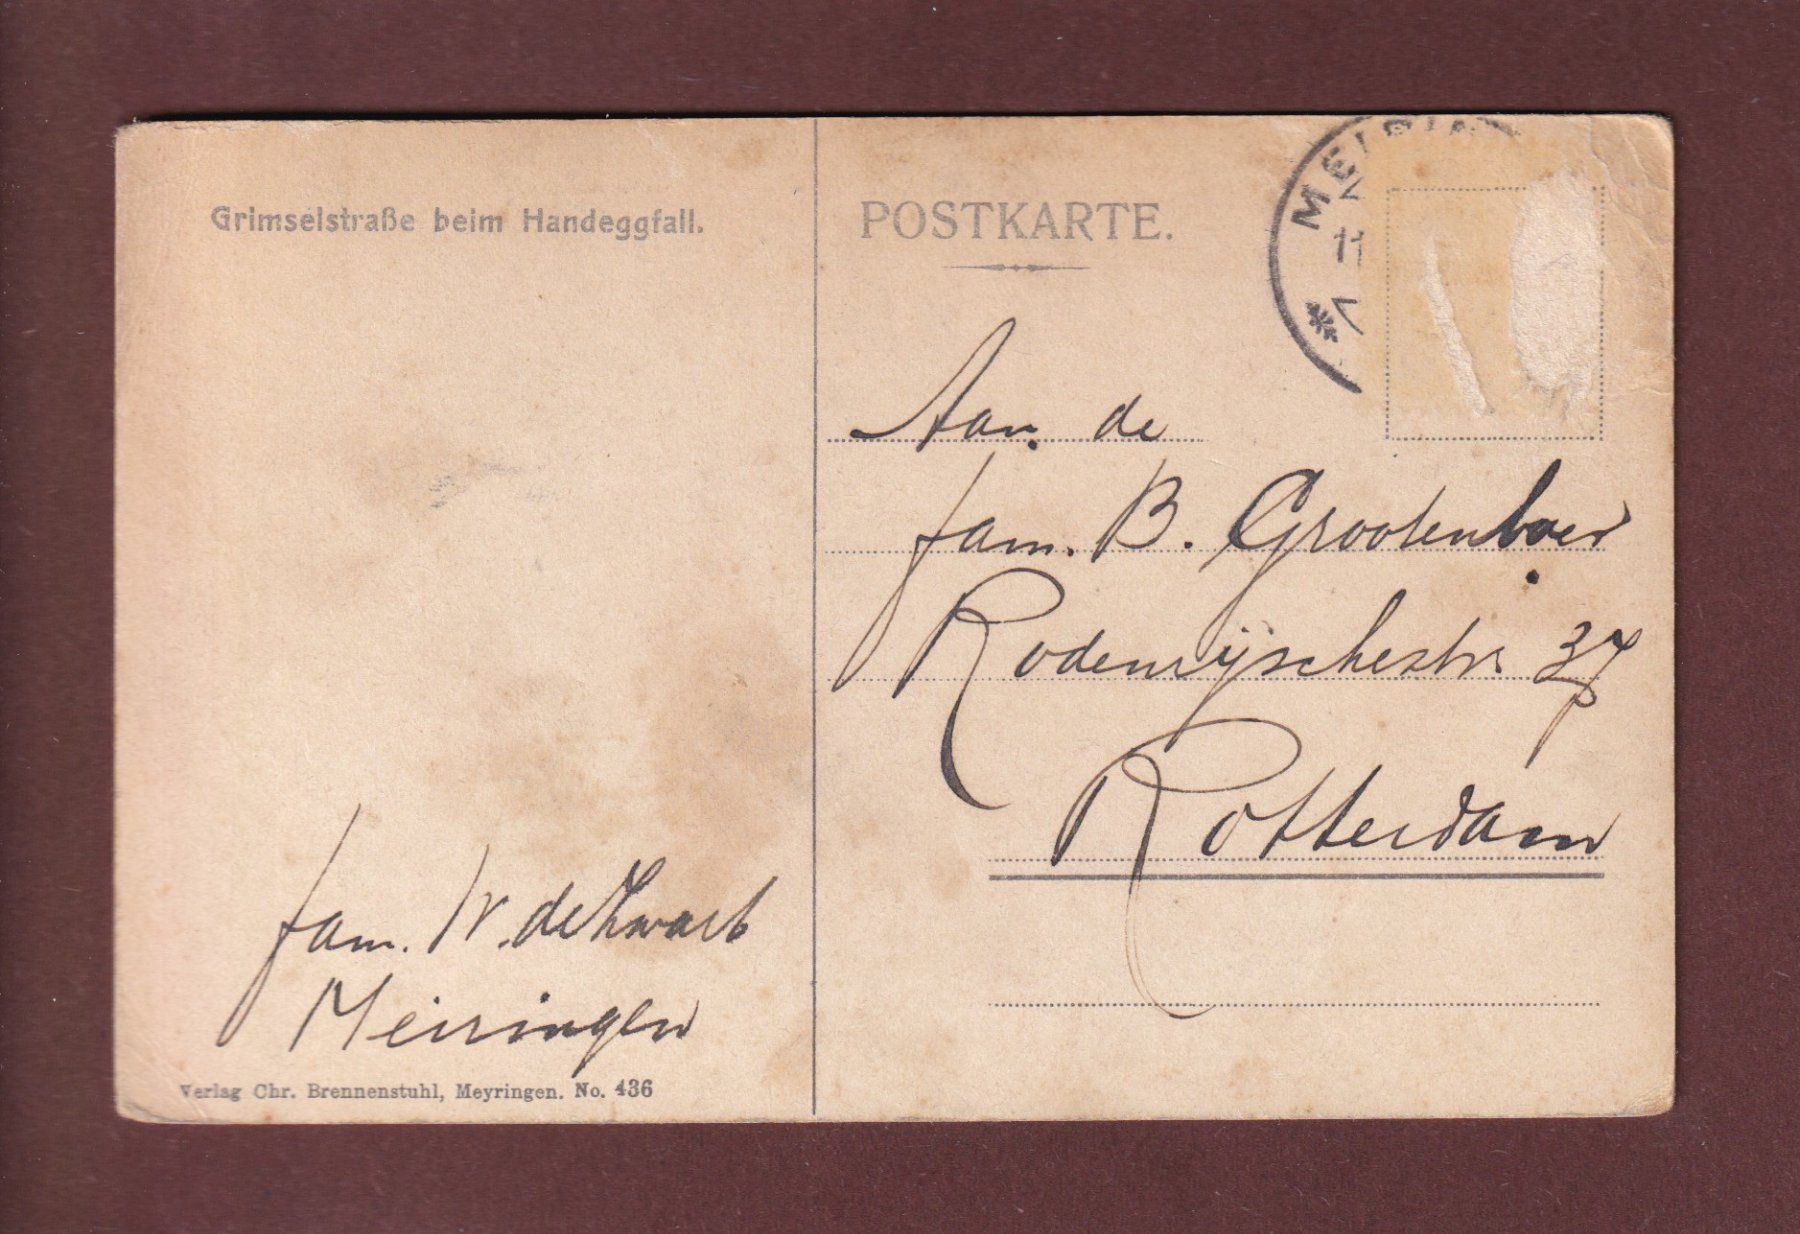 Grimselstraße beim Handeggfall.
POSTKARTE.
MEIRIN
11
Aan de
fam. B. Grootenboer
Rodenrijschestr. 37
Rotterdam
fam. W. de Zwart
Meiringen
Verlag Chr. Brennenstuhl, Meyringen. No. 436